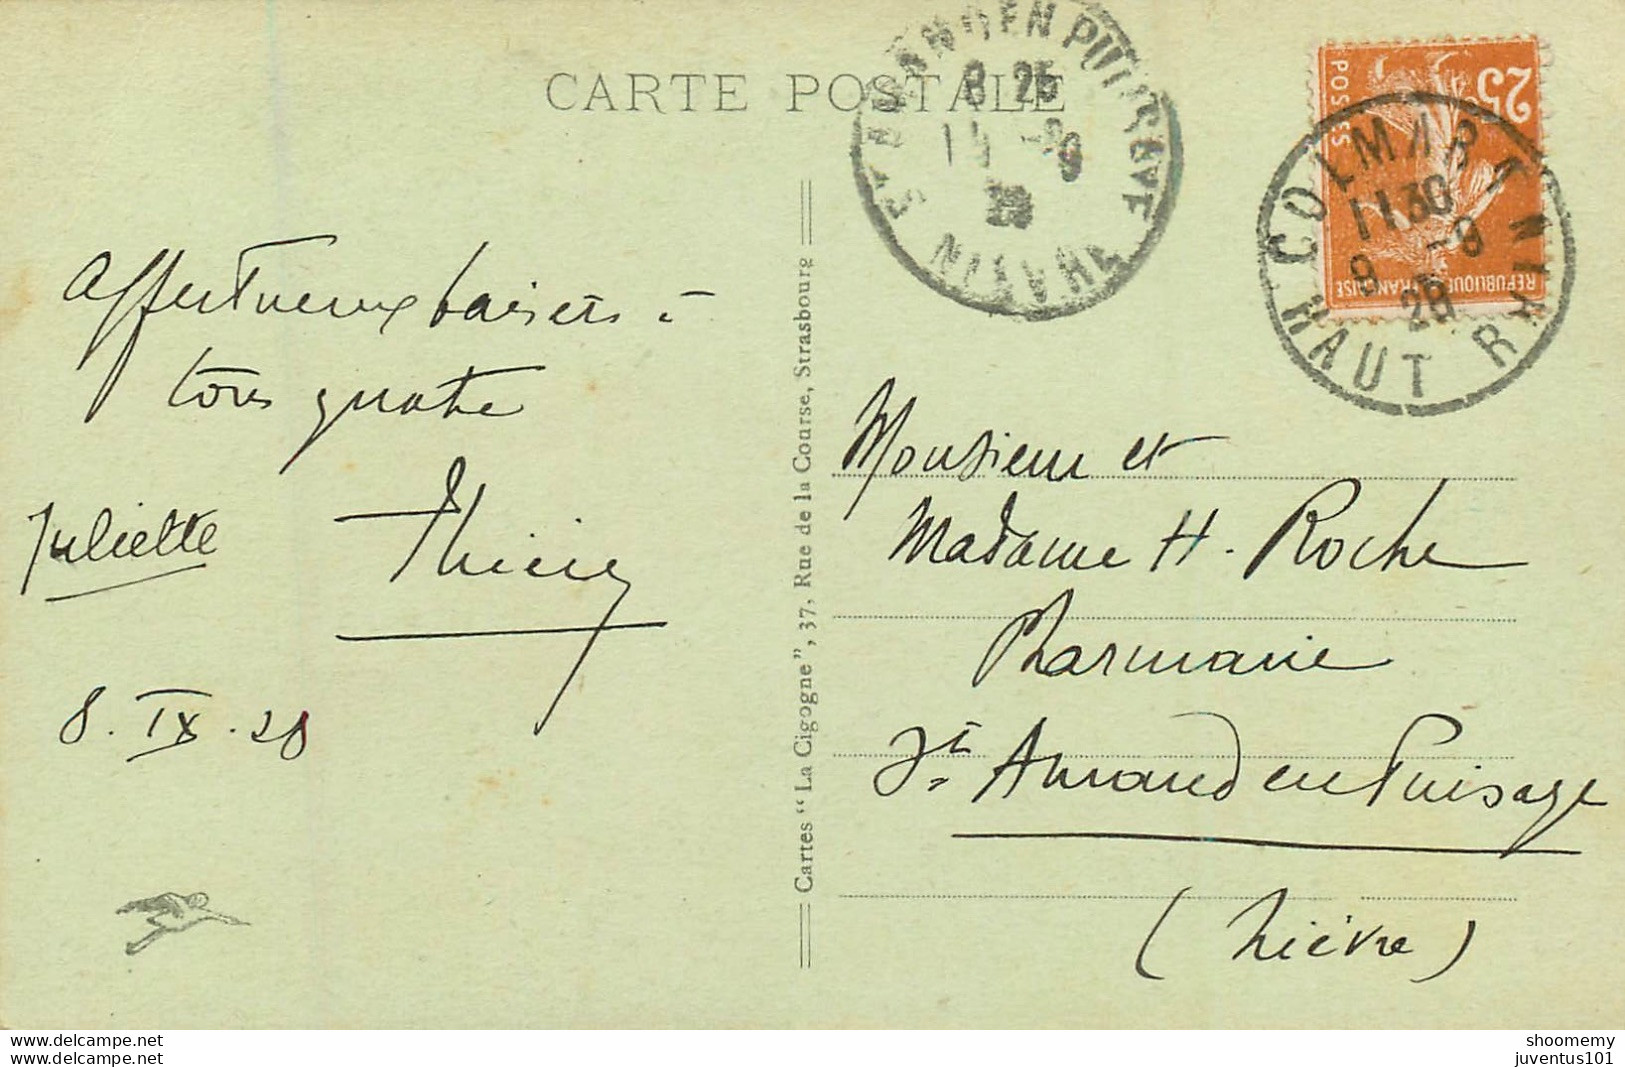 CARTE POSTALE
Affectueux baisers à
tous quatre
Juliette Thierry
8. IX. 28
Cartes "La Cigogne", 37, Rue de la Course, Strasbourg
ST AMAND EN PUISAYE
8 25
11 -9
28
NIEVRE
25
POSTES
REPUBLIQUE FRANÇAISE
COLMAR
11 30
9 -9
28
HAUT RHIN
Monsieur et
Madame H. Roche
Pharmacie
St. Amand en Puisaye
(Nièvre)
My beautiful things
All my items
shoomemy
juventus101